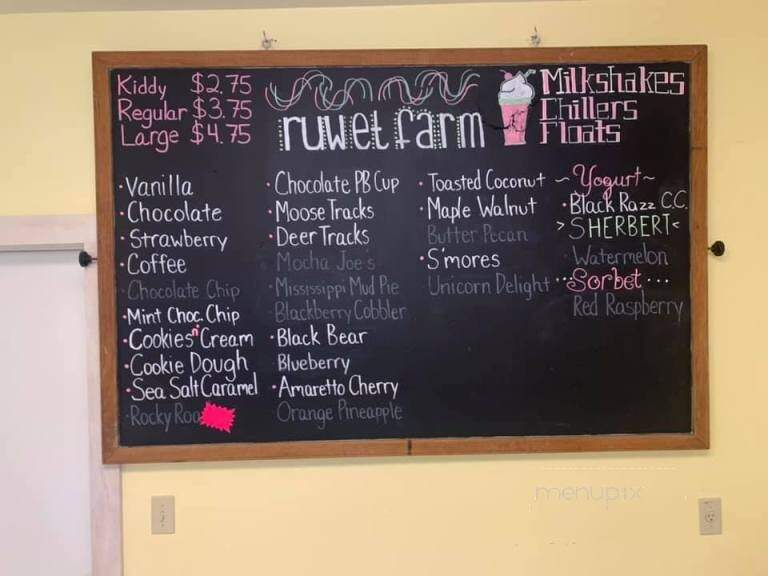 Kiddy $2.75
Regular $3.75
Large $4.75
ruwet farm
Milkshakes
Chillers
Floats
• Vanilla
• Chocolate
• Strawberry
• Coffee
• Chocolate Chip
• Mint Choc. Chip
• Cookies n' Cream
• Cookie Dough
• Sea Salt Caramel
• Rocky
• Chocolate PB Cup
• Moose Tracks
• Deer Tracks
• Mocha Joe's
• Mississippi Mud Pie
• Blackberry Cobbler
• Black Bear
Blueberry
• Amaretto Cherry
Orange Pineapple
• Toasted Coconut
• Maple Walnut
Butter Pecan
• S'mores
Unicorn Delight
~ Yogurt ~
• Black Razz C.C.
> SHERBERT <
Watermelon
... Sorbet ...
Red Raspberry
menupix